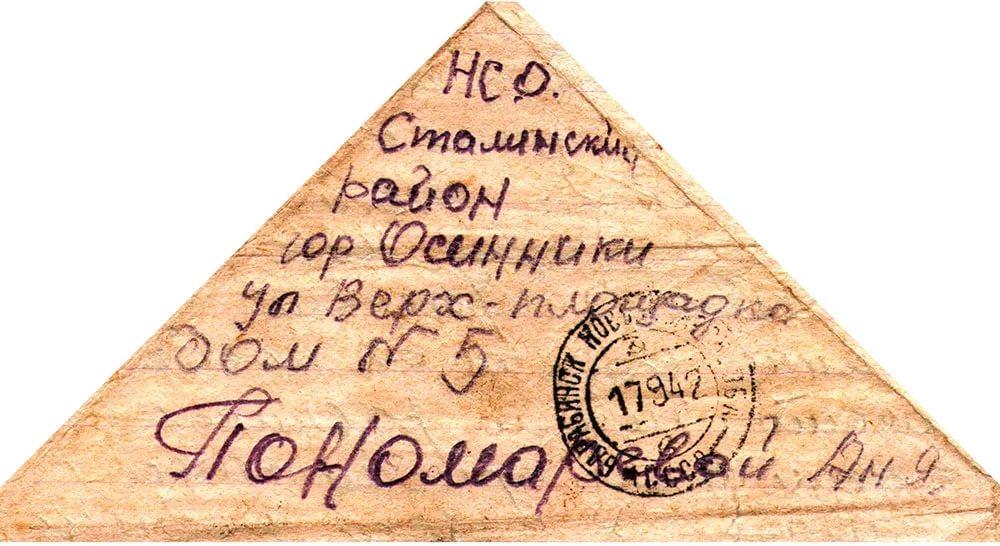 НСО.
Сталинский
район
гор Осинники
ул Верх-площадка
дом N 5
Пономаревой Аня
БАРАБИНСК НОВ
17 9 42
СССР